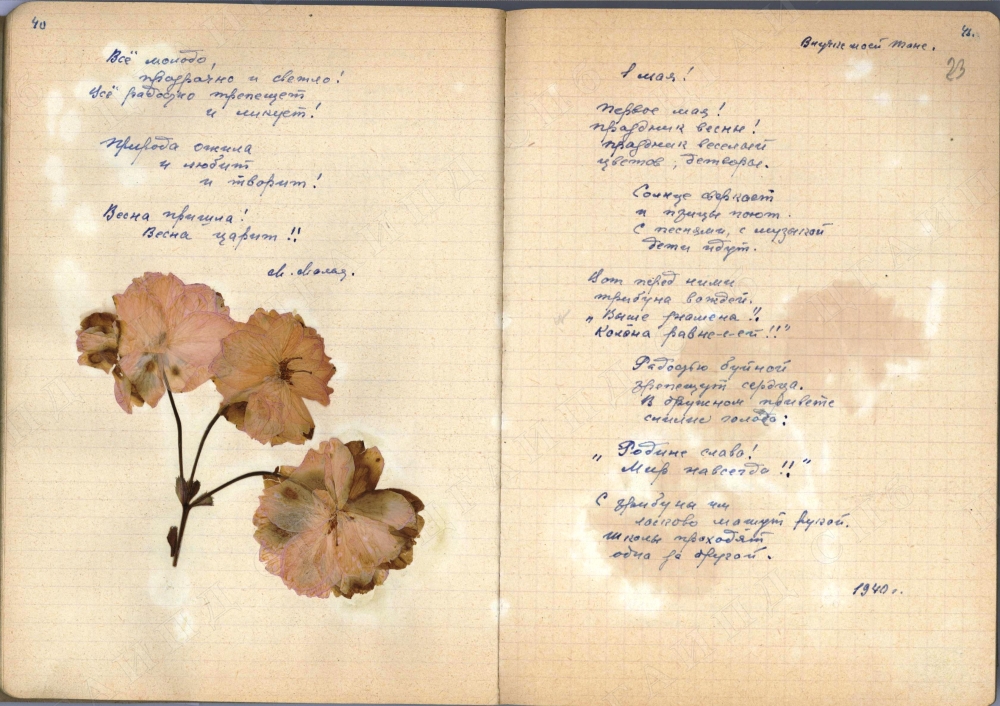 40
Всё молодо,
прозрачно и светло!
Всё радостно трепещет
и ликует!
Природа ожила
и любит
и творит!
Весна пришла!
Весна царит!!
41.
Внучке моей Тане.
23
1 мая!
Первое мая!
Праздник весны!
Праздник веселый
цветов, детворы.
Солнце сверкает
и птицы поют.
С песнями, с музыкой
дети идут.
Вот перед ними
трибуна вождей.
„Выше знамена!!
Колона равне-е-ей!!"
Радостью буйной
трепещут сердца.
В дружном привете
голоса:
„Родине слава!
Мир навсегда!!"
С трибуны им
ласково машут рукой.
Школы проходят
одна за другой.
1940 г.